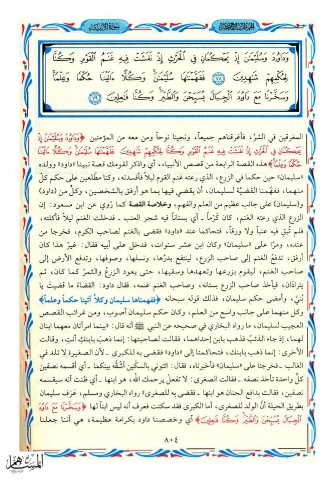 سورة الأنبياء
وَدَاوُودَ وَسُلَيْمَٰنَ إِذْ يَحْكُمَانِ فِي الْحَرْثِ إِذْ نَفَشَتْ فِيهِ غَنَمُ الْقَوْمِ وَكُنَّا
لِحُكْمِهِمْ شَٰهِدِينَ ﴿٧٨﴾ فَفَهَّمْنَٰهَا سُلَيْمَٰنَ وَكُلًّا ءَاتَيْنَا حُكْمًا وَعِلْمًا
وَسَخَّرْنَا مَعَ دَاوُودَ الْجِبَالَ يُسَبِّحْنَ وَالطَّيْرَ وَكُنَّا فَٰعِلِينَ ﴿٧٩﴾
المغرقين في الشر، فأغرقناهم جميعاً، ونجينا نوحاً ومن معه من المؤمنين ﴿وَدَاوُودَ وَسُلَيْمَٰنَ إِذْ
يَحْكُمَانِ فِي الْحَرْثِ إِذْ نَفَشَتْ فِيهِ غَنَمُ الْقَوْمِ وَكُنَّا لِحُكْمِهِمْ شَٰهِدِينَ فَفَهَّمْنَٰهَا سُلَيْمَٰنَ وَكُلًّا ءَاتَيْنَا
حُكْمًا وَعِلْمًا﴾ هذه القصة الرابعة من قصص الأنبياء، أي واذكر لقومك قصة نبينا «داود» وولده
«سليمان» حين حكما في الزرع، الذي رعته غنم القوم ليلاً فأفسدته، وكنا مطلعين على حكم كل
منهما، ففهمنا القضية لسليمان، أن يقضي فيها بما هو أرفق بالشخصين، وكل من (داود)
و(سليمان) على جانب عظيم من العلم والفهم، وخلاصة القصة كما روي عن ابن مسعود: إن
الزرع الذي رعته الغنم، كان كرماً ـ أي بستاناً فيه شجر العنب ـ فدخلت الغنم ليلاً فأكلته،
فلم تبق فيه عنباً ولا ورقاً، فتحاكما عند «داود» فقضى بالغنم لصاحب الكرم، فخرجا من
عنده، ومرا على «سليمان» وكان ابن عشر سنوات، فدخل على أبيه فقال: غير هذا كان
أرفق، تدفع الغنم إلى صاحب الزرع، فينتفع بدرها، ونسلها، وصوفها، وتدفع الأرض إلى
صاحب الغنم، ليقوم بزرعها وتعهدها وسقيها، حتى يعود الزرع والثمر كما كان، ثم
يترادان، فيأخذ صاحب الزرع بستانه، وصاحب الغنم غنمه، فقال داود: القضاء ما قضيت يا
بني، وأمضى حكم سليمان، فذلك قوله سبحانه ﴿ففهمناها سليمان وكلاً آتينا حكماً وعلماً﴾
وكل منهما على جانب واسع من العلم، وكان حكم سليمان أصوب، ومن غرائب القصص
العجيب لسليمان، ما رواه البخاري في صحيحه عن النبي ﷺ أنه قال: «بينما امرأتان معهما ابنان
لهما، إذ جاء الذئب فذهب بابن إحداهما، فقالت لصاحبتها: إنما ذهب بابنك أنتِ، وقالت
الأخرى: إنما ذهب بابنك، فتحاكمتا إلى «داود» فقضى به للكبرى ـ لأن الصغيرة لا تلد في
الغالب ـ فخرجتا على «سليمان» فأخبرتاه، فقال: ائتوني بالسكين أشقه بينكما ـ أي أقسمه نصفين
كل واحدة تأخذ نصفه ـ فقالت الصغرى: لا تفعل يرحمك الله، هو ابنها ـ أي ظنت أنه سيقسمه
نصفين، فقالت بدافع الحنان هو ابنها ـ فقضى به للصغرى» رواه البخاري ومسلم، عرف سليمان
بطريق الحيلة أن الولد للصغرى، أما الكبرى فقد سكتت فعرف أنه ليس ابناً لها ﴿وَسَخَّرْنَا مَعَ دَاوُودَ
الْجِبَالَ يُسَبِّحْنَ وَالطَّيْرَ وَكُنَّا فَٰعِلِينَ﴾ أي وخصصنا داود بكرامة عظيمة، هي أننا جعلنا
٨٠٤